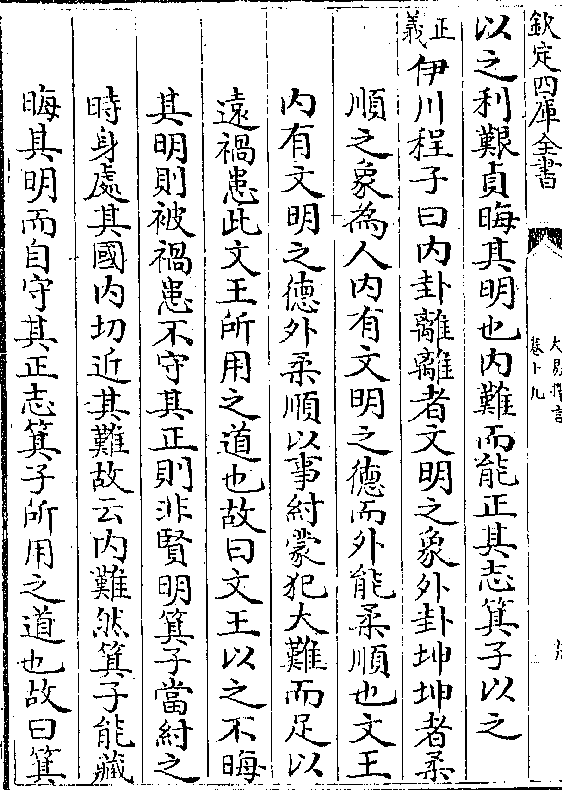 欽定四庫全書
大易擇言
卷十九
以之利艱貞晦其明也内難而能正其志箕子以之
正義伊川程子曰内卦離離者文明之象外卦坤坤者柔
順之象為人内有文明之德而外能柔順也文王
内有文明之德外柔順以事紂蒙犯大難而足以
遠禍患此文王所用之道也故曰文王以之不晦
其明則被禍患不守其正則非賢明箕子當紂之
時身處其國内切近其難故云内難然箕子能藏
晦其明而自守其正志箕子所用之道也故曰箕